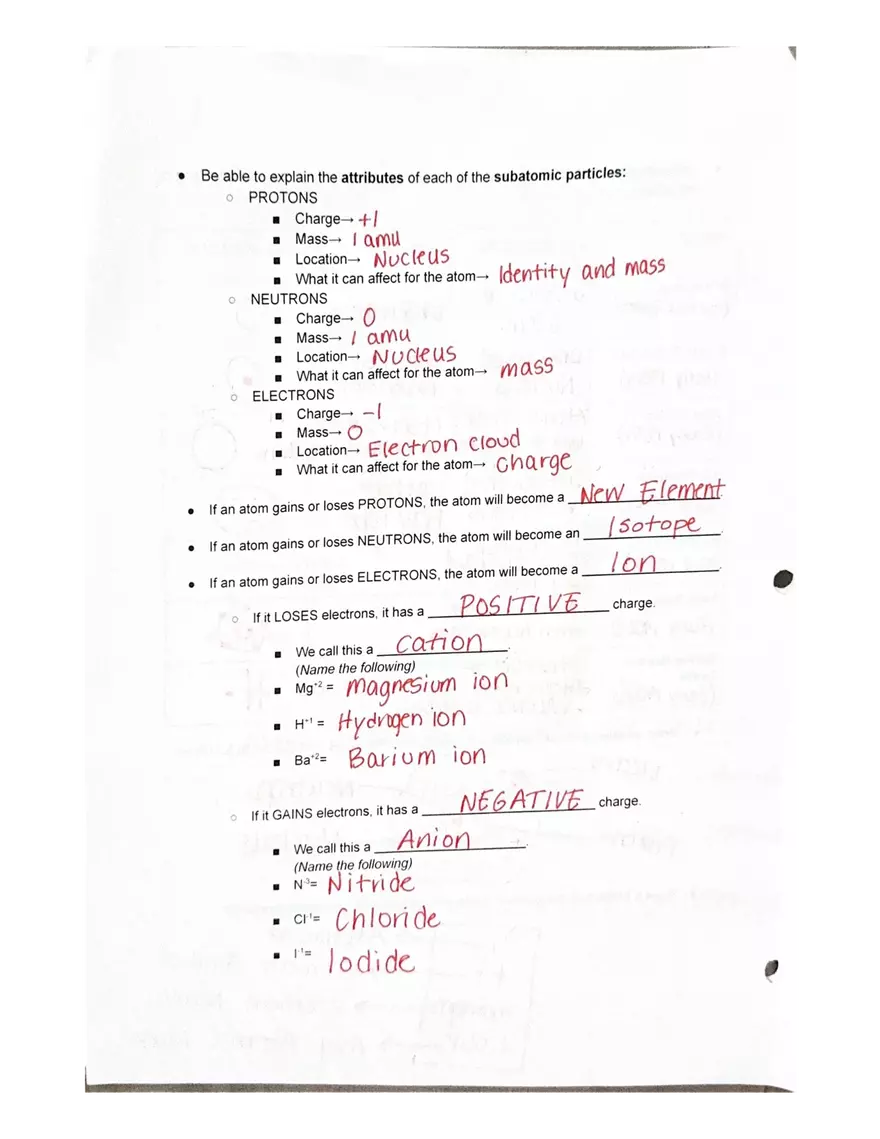 • Be able to explain the attributes of each of the subatomic particles:
○ PROTONS
■ Charge→ +1
■ Mass→ 1 amu
■ Location→ Nucleus
■ What it can affect for the atom→ Identity and mass
○ NEUTRONS
■ Charge→ 0
■ Mass→ 1 amu
■ Location→ Nucleus
■ What it can affect for the atom→ mass
○ ELECTRONS
■ Charge→ -1
■ Mass→ 0
■ Location→ Electron cloud
■ What it can affect for the atom→ charge
• If an atom gains or loses PROTONS, the atom will become a New Element.
• If an atom gains or loses NEUTRONS, the atom will become an Isotope.
• If an atom gains or loses ELECTRONS, the atom will become a Ion.
○ If it LOSES electrons, it has a POSITIVE charge.
■ We call this a Cation.
(Name the following)
■ Mg⁺² = magnesium ion
■ H⁺¹ = Hydrogen ion
■ Ba⁺²= Barium ion
○ If it GAINS electrons, it has a NEGATIVE charge.
■ We call this a Anion.
(Name the following)
■ N⁻³= Nitride
■ Cl⁻¹= Chloride
■ I⁻¹= Iodide